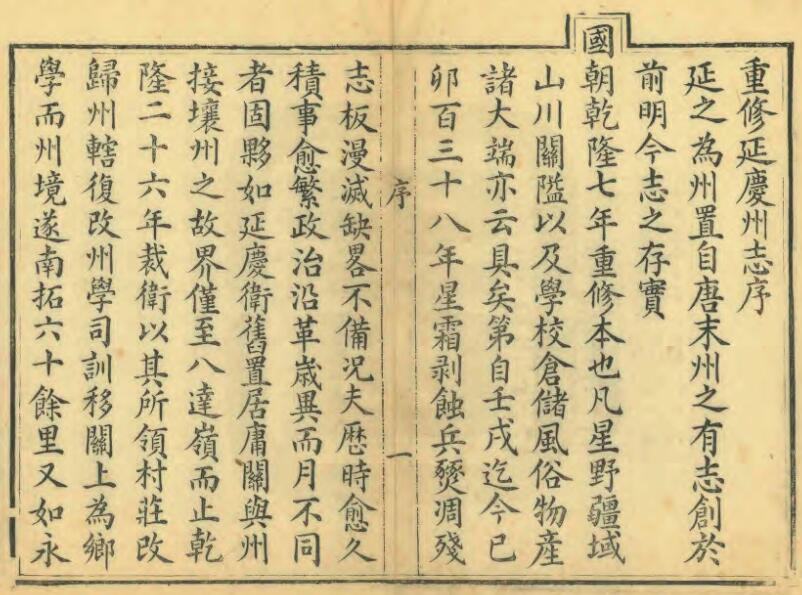 重修延慶州志序
延之為州置自唐末州之有志創於
前明今志之存實
國朝乾隆七年重修本也凡星野疆域
山川關隘以及學校倉儲風俗物產
諸大端亦云具矣第自壬戌迄今己
卯百三十八年星霜剥蝕兵燹凋殘
序
一
志板漫滅缺畧不備况夫厯時愈久
積事愈繁政治沿革歲異而月不同
者固夥如延慶衛舊置居庸關與州
接壤州之故界僅至八達嶺而止乾
隆二十六年裁衛以其所領村莊改
歸州轄復改州學司訓移關上為鄉
學而州境遂南拓六十餘里又如永